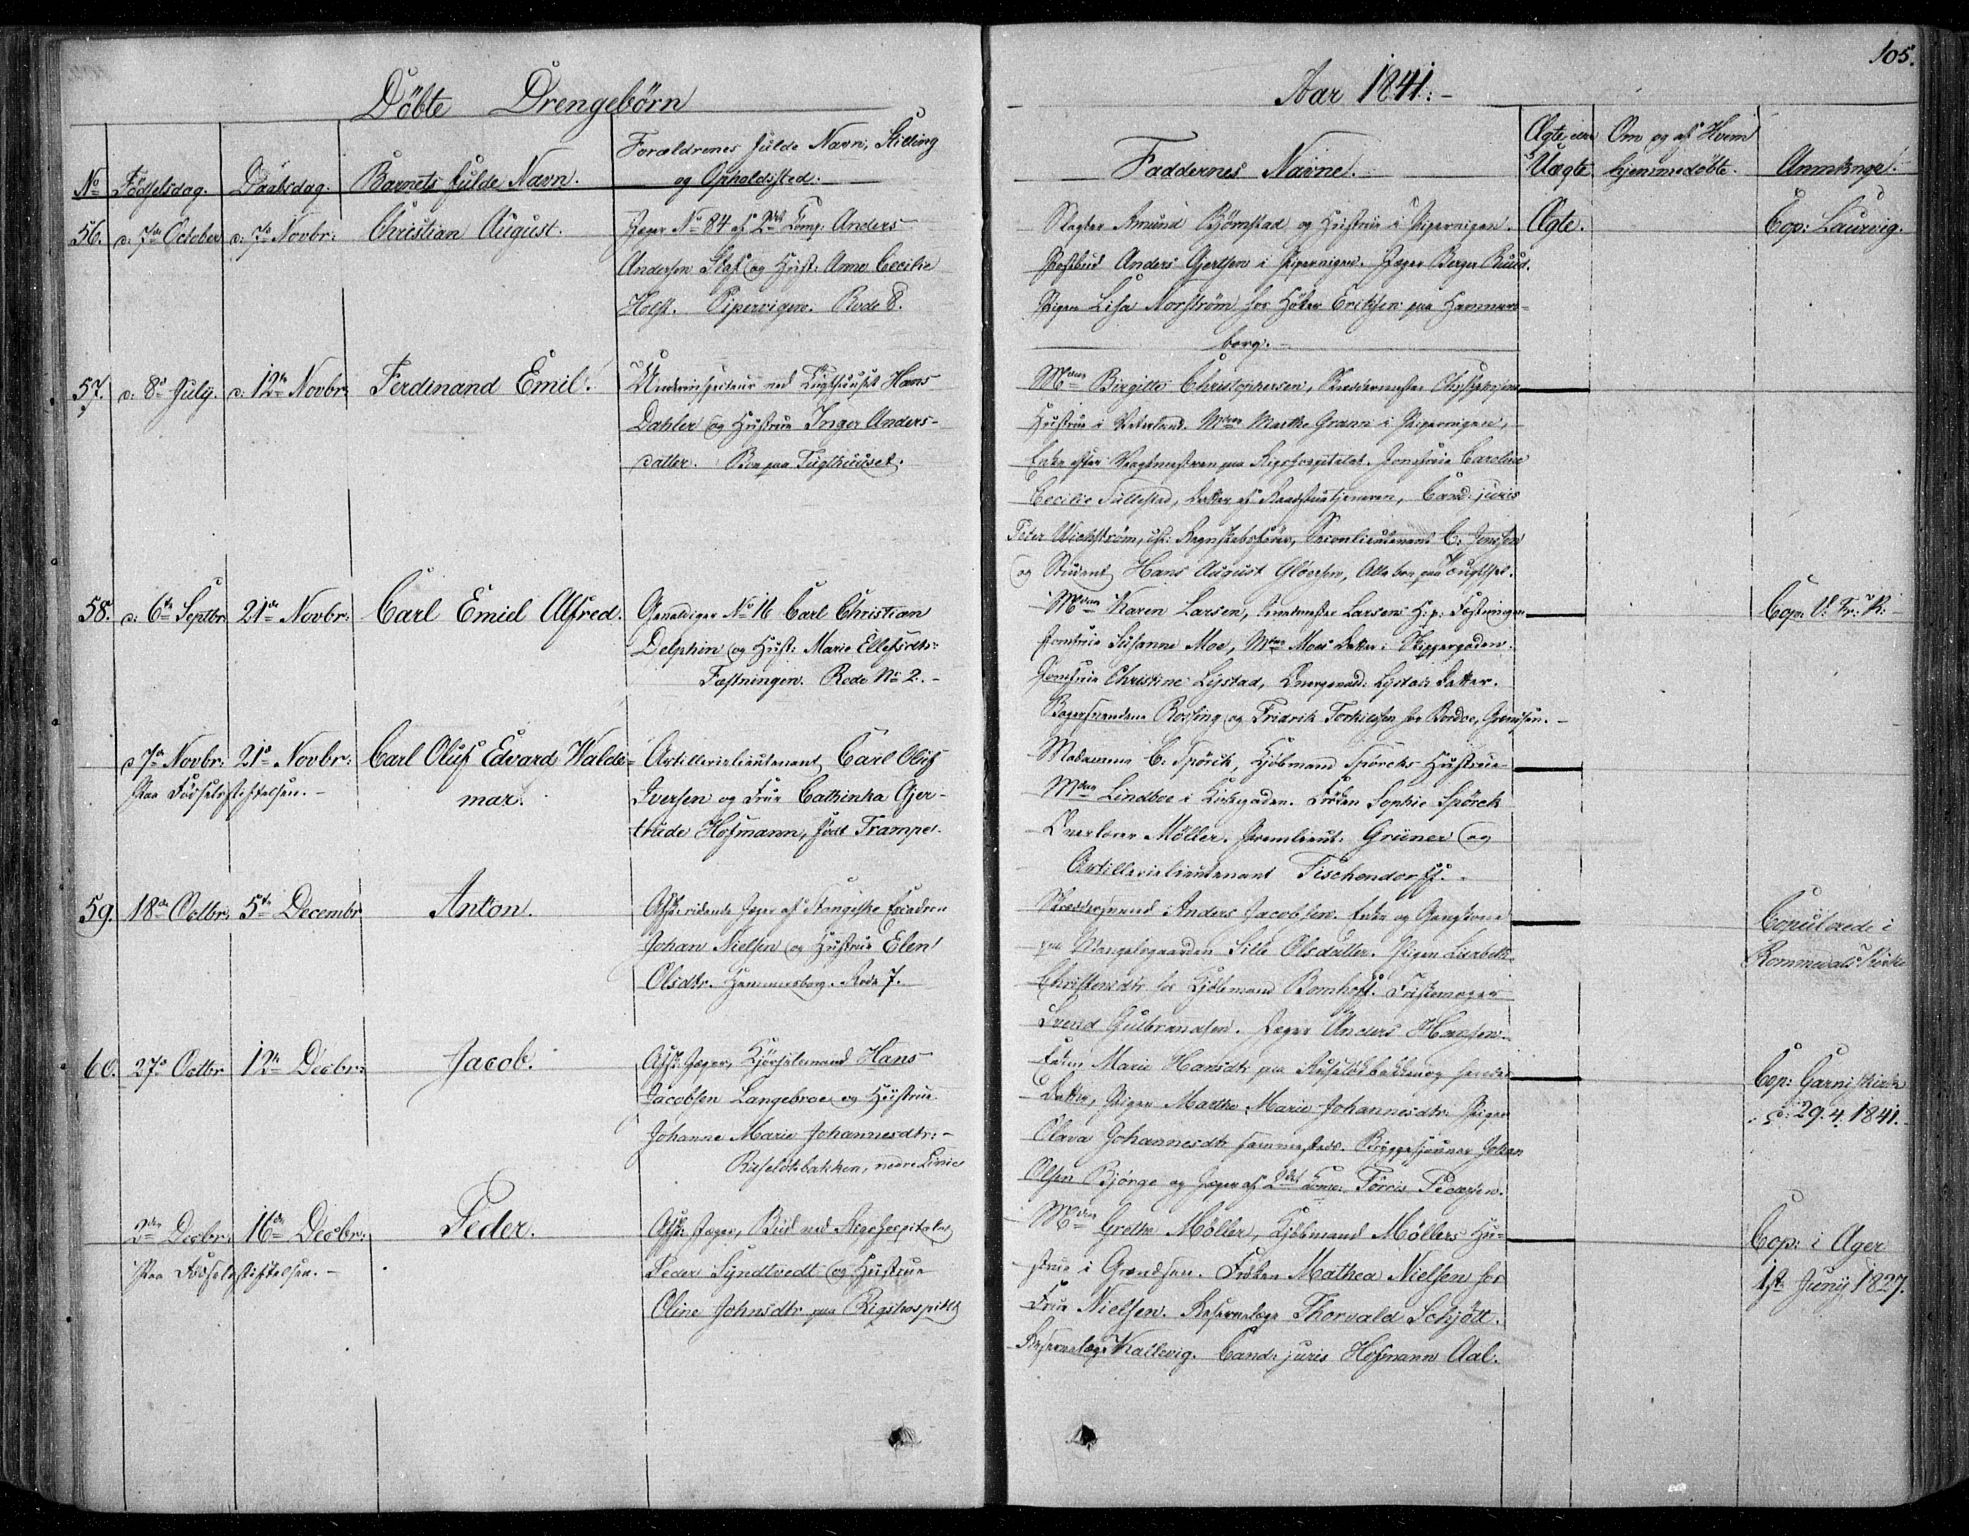 105.
Döbte Drengebørn
Aar 1841.
No Födselsdag. Daabsdag. Barnets fulde Navn. Forældrenes fulde Navn, Stilling
og Opholdssted.
Faddernes Navne. Ægte eller
Uægte. Om og af Hvem
hjemmedöbte. Anmærkngr.
56. d: 7de October d: 7de Novbr: Christian August. Jæger No 84 af 2det Komp: Anders
Andersen og Hust: Anne Cecilie
Holst. Pipervigen. Rode 8.
Slagter Amund Björnstad og Hustrue i Pipervigen.
Postbud Anders Gjertsen i Pipervigen. Jæger Berger Ruud.
Pigen Lisa Norström hos Höker Eriksen paa Hammers-
borg.
Ægte. Cop: Laurvig.
57. d: 8de July. d: 12te Novbr: Ferdinand Emil. Underinspecteur ved Tugthuuset Hans
Dahler og Hustrue Inger Anders-
datter. Boe paa Tugthuuset.
Mdme Birgitte Christophersen,
Hustrue i Vaterland. Mdme Marthe Grann i Pipervigen,
Enke efter paa Rigshospitalet. Jomfrue Caroline
Cecilie Tullestad, Datter af Raadstuetjeneren, Cand: juris
Peter Wichström, Regnskabsförer, Seconlieutenant C. Jensen
og Student Hans August Glöersen, Alle boe paa Tugthst.
58. d: 6te Septbr 21de Novbr: Carl Emiel Alfred. Gevaldiger No 16 Carl Christian
Delphin og Hust: Marie Ellefsdtr:
Fæstningen. Rode No 2.
Mdme Karen Larsen, Larsens H: p: Fæstningen
Jomfrue Susanne Moe, Mdme Moes Datter i Skippergaden.
Jomfrue Christine Lystad, Lystads Datter.
Bagersvendene Rossing og Fridrik Torkildsen hos Bordoe, Grændsen.
Cop: V: Fr: K:
d 7de Novbr: 21de Novbr: Carl Oluf Edvard Walde-
mar.
Paa Födselsstiftelsen.
Artillerielieutenant, Carl Oluf
Iversen og Frue Cathinka Gjer-
thrude Hofmann, födt Trampe.
Madamme C. Spörck, Kjöbmand Spörcks Hustrue
Mdme Lindboe i Kirkegaden. Fröken Sophie Spörck
Overlærer Möller. Premlieut: Grüner og
Artillerielieutenant Tischendorff.
59. 18de Octbr: 5te Decembr Anton. Afsk: ridende Jæger af Stangiske Escadron
Johan Nielsen og Hustrue Elen
Olsdtr. Hammersborg. Rode 7.
Skrædersvend Anders Jacobsen. Enke og Gangkone
paa Mangelsgaarden Sille Olsdatter. Pigen Lisabeth
Christensdtr hos Kjöbmand Bomhoff.
Svend Gulbrandsen. Jæger Anders Hansen.
Copulerede i
Rommedals Kirke
60. 27de Octbr 12te Decbr: Jacob. Afsk: Jæger, Kjörselsmand Hans
Jacobsen Langebroe og Hustrue
Johanne Marie Johannesdtr:
Ruselökbakken, nedre Linie
Enken Marie Hansdtr paa Ruselökbakken og hendes
Datter, Pigen Marthe Marie Johannesdtr. Pigen
Olava Johannesdtr sammesteds. Bryggesjouer Johan
Olsen Björge og Jæger af 2det Komp: Torris Pedersen.
Cop: Garnis: Kirke
d: 29.4.1841.
2den Decbr: 16de Decbr: Peder.
Paa Födselsstiftelsen.
Afsk: Jæger, Bud ved Rigshospitalet
Peder Syndtvedt og Hustrue
Oline Johnsdtr paa Rigshospitlt
Mdme Grethe Möller, Kjöbmand Möllers Hu-
strue i Grændsen. Fröken Mathea Nielsen hos
Frue Nielsen. Reservelæge Thorvald Schjött.
Reservelæge Kallevig. Cand: juris Hofmann Aal.
Cop: i Ager
1ste Juny 1827.